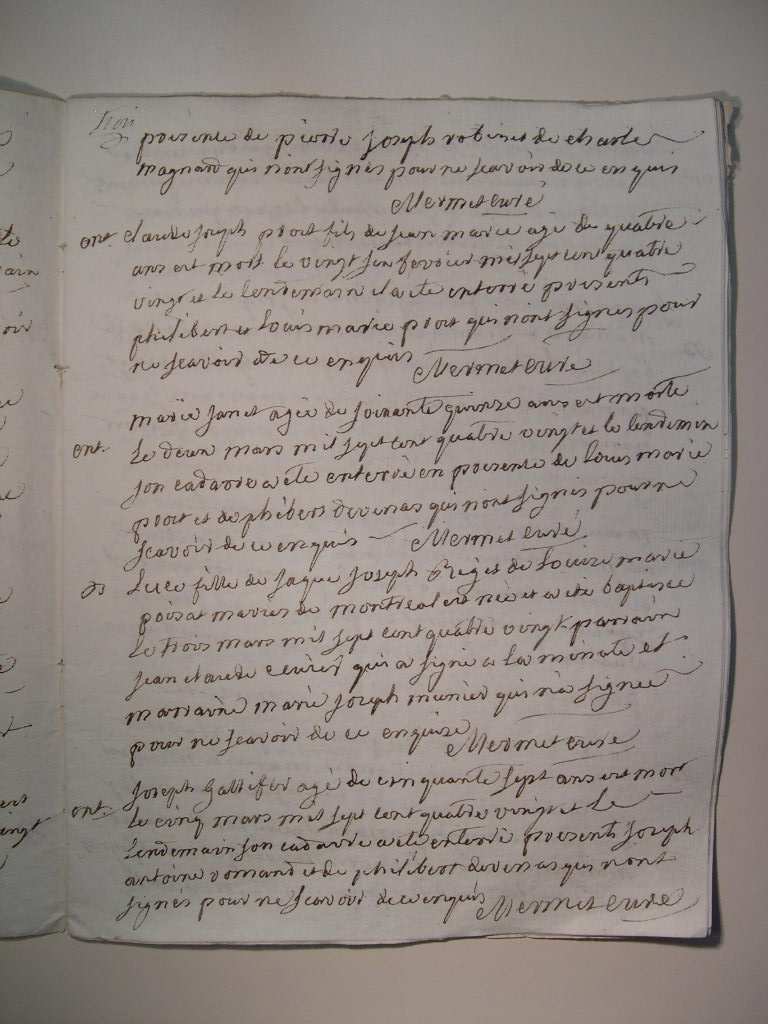 presence de pierre Joseph robinet de charle
magnard qui nont signes pour ne scavoir de ce enquis
Mermet curé
ent. claude joseph proit fils de jean marie agé de quatre
ans est mort le vingt fevrier mil sept cent quatre
vingt et le lendemain il a ete enterré presents
philibert et Louis marie proit qui nont signes pour
ne scavoir de ce enquis Mermet curé
marie janet agée de soixante quinze ans est morte
ent. Le deux mars mil sept cent quatre vingt et le lendemin
son cadavre a ete enterré en presence de louis marie
proit et de phibert devenas qui nont signes pour ne
scavoir de ce enquis Mermet curé
Luce fille de jaque joseph Reget de Louise marie
poisat maries de montreal est neé et a eté baptisee
le trois mars mil sept cent quatre vingt parrain
jean claude qui a signé a la minute et
marraine marie joseph munier qui n'a signeé
pour ne scavoir de ce enquise Mermet curé
joseph Gallifer agé de cinquante sept ans est mort
ent. le cinq mars mil sept cent quatre vingt et le
Lendemain son cadavre a ete enterré presents joseph
antoine romand et de philibert devenas qui n'ont
signés pour ne scavoir de ce enquis Mermet curé